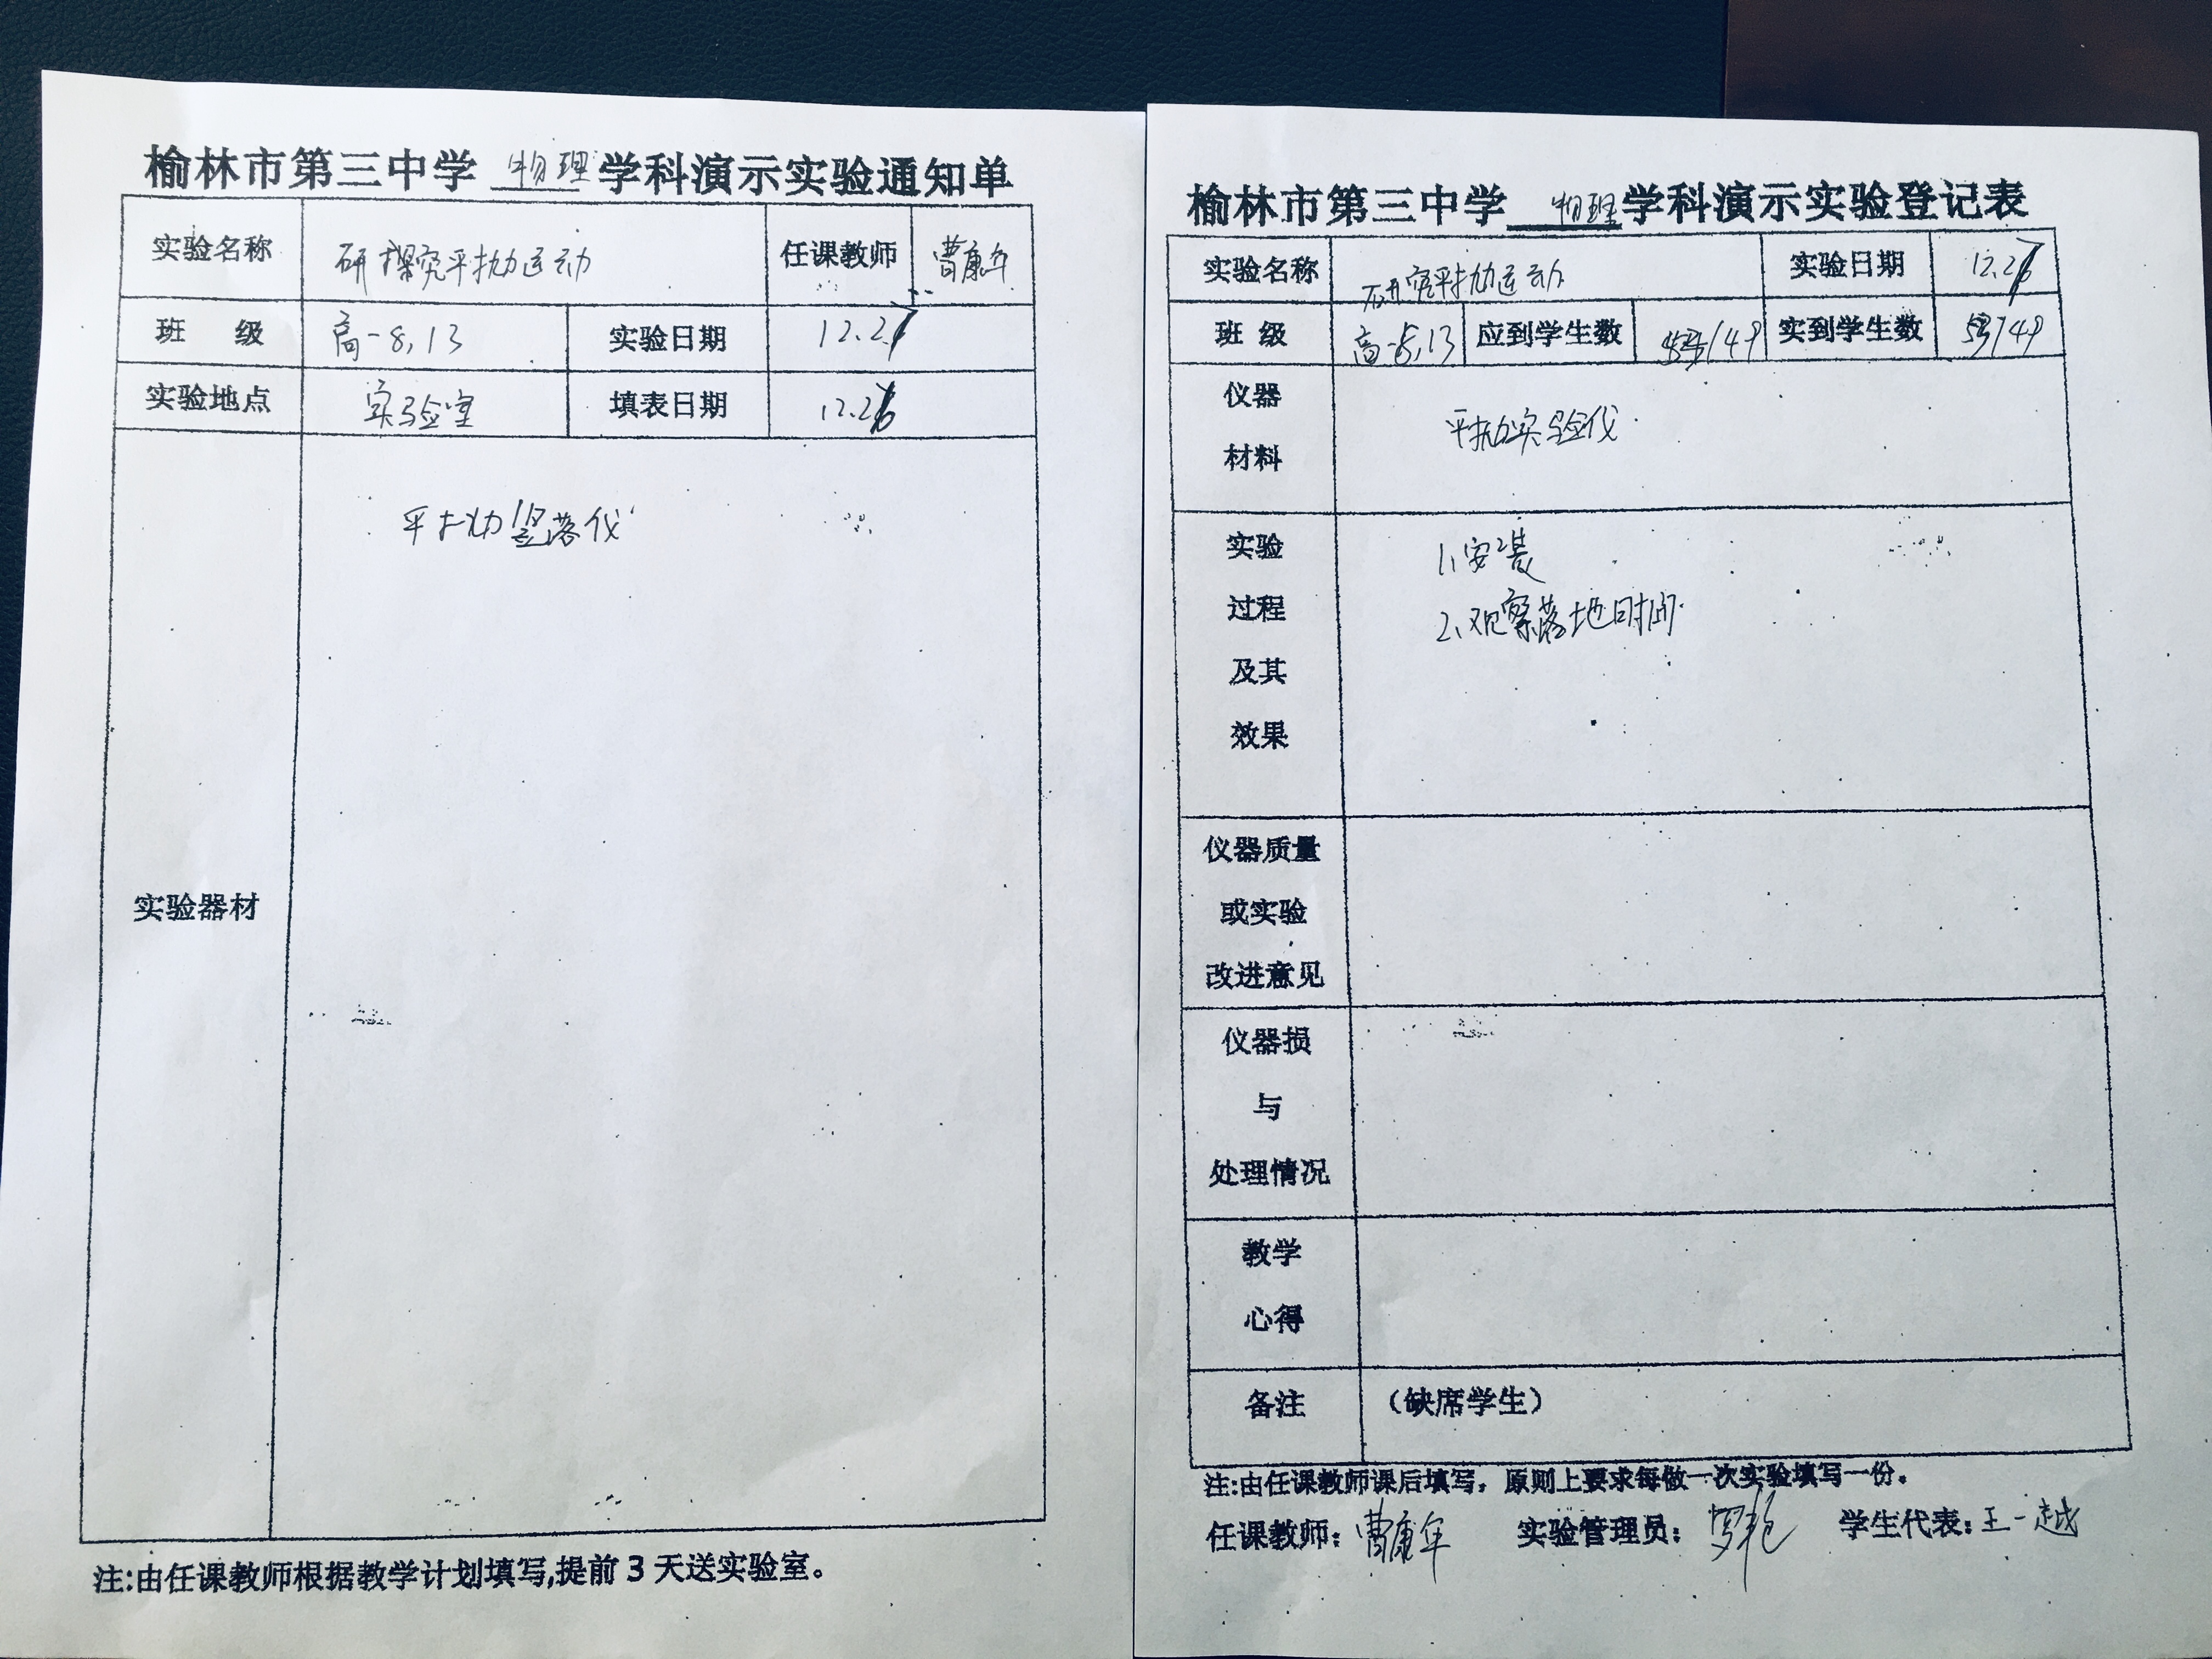 榆林市第三中学 物理 学科演示实验通知单
实验名称 探究平抛运动 任课教师 曹康年
班 级 高一8,13 实验日期 12.27
实验地点 实验室 填表日期 12.26
平抛竖落仪
实验器材
注:由任课教师根据教学计划填写,提前3天送实验室。
榆林市第三中学 物理 学科演示实验登记表
实验名称 研究平抛运动 实验日期 12.27
班 级 高一8,13 应到学生数 /49 实到学生数 /49
仪器
材料
平抛实验仪
实验
过程
及其
效果
1、安装
2、观察落地时间.
仪器质量
或实验
改进意见
仪器损
与
处理情况
教学
心得
备注 (缺席学生)
注:由任课教师课后填写，原则上要求每做一次实验填写一份。
任课教师: 曹康年 实验管理员: 罗艳 学生代表: 王一越